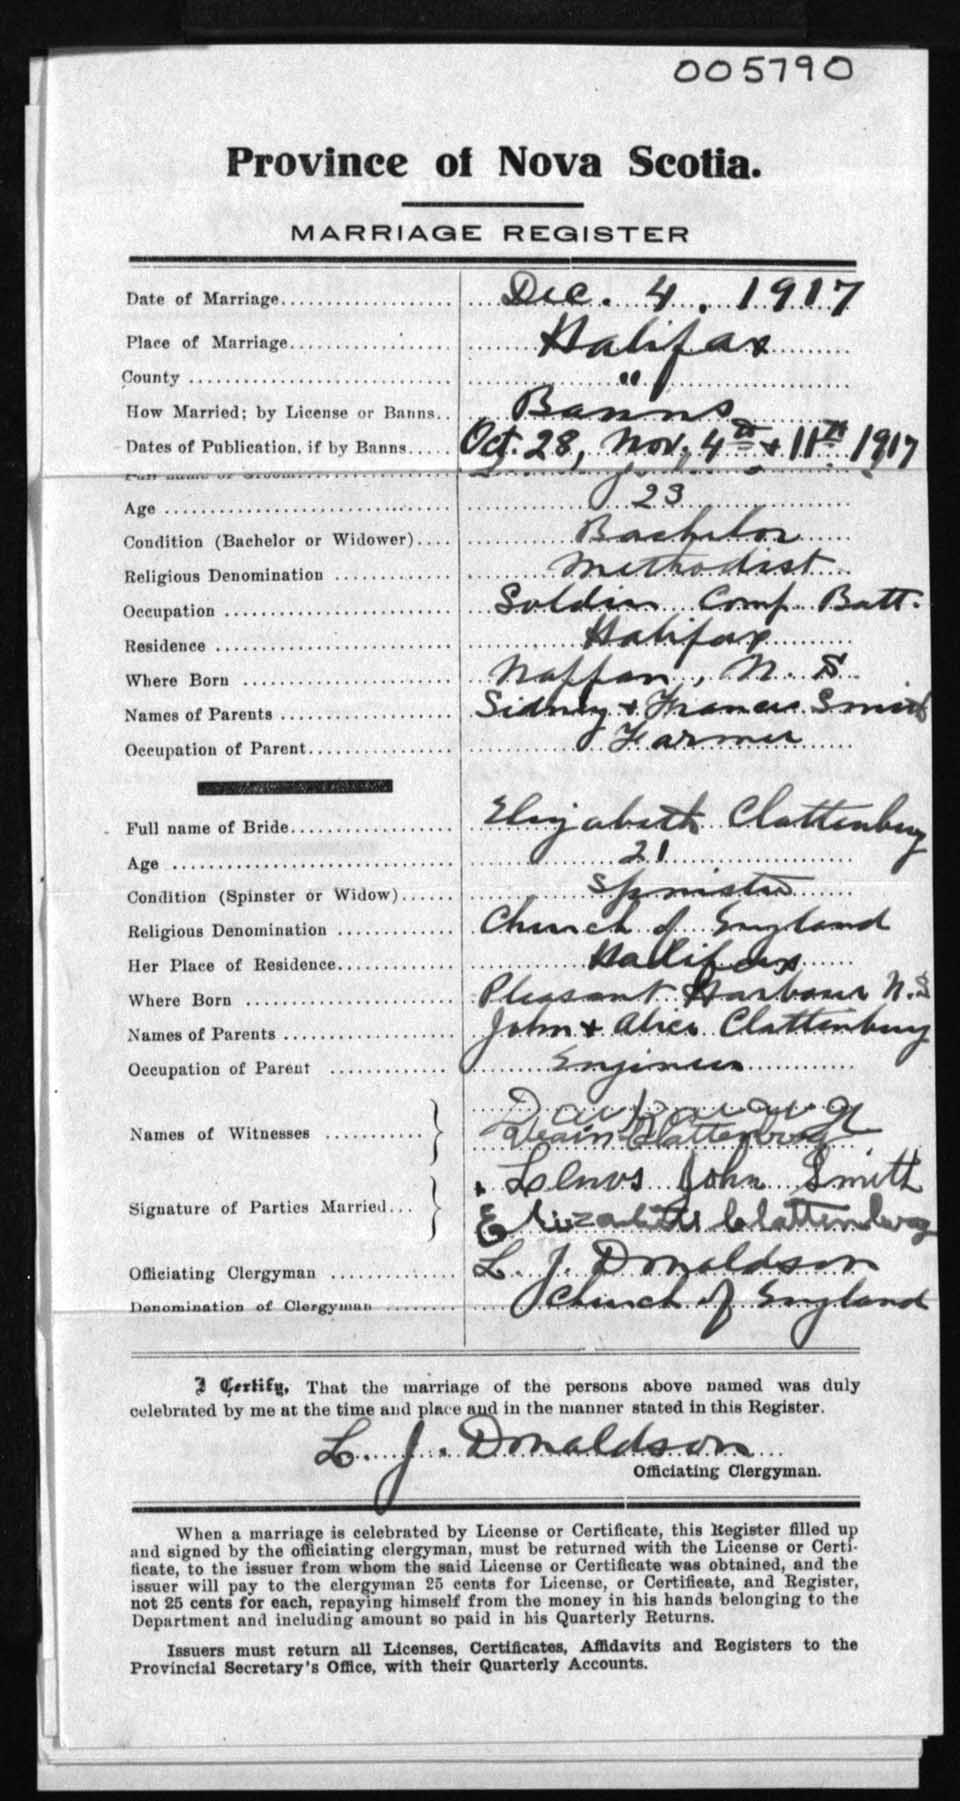 005790
Province of Nova Scotia.
MARRIAGE REGISTER
Date of Marriage Dec. 4, 1917
Place of Marriage Halifax
County "
How Married; by License or Banns Banns
Dates of Publication, if by Banns Oct. 28, Nov. 4th + 11th 1917
Full name of Groom
Age 23
Condition (Bachelor or Widower) Bachelor
Religious Denomination Methodist
Occupation Soldier Comp. Batt.
Residence Halifax
Where Born Nappan, N. S
Names of Parents Sidney + Frances Smith
Occupation of Parent Farmer
Full name of Bride Elizabeth Clattenburg
Age 21
Condition (Spinster or Widow) Spinster
Religious Denomination Church of England
Her Place of Residence Halifax
Where Born Pleasant Harbour N.S
Names of Parents John + Alice Clattenburg
Occupation of Parent Engineer
Names of Witnesses
Clattenburg
John Smith
Signature of Parties Married
Elizabeth Clattenburg
Officiating Clergyman L. J. Donaldson
Denomination of Clergyman Church of England
I Certify, That the marriage of the persons above named was duly
celebrated by me at the time and place and in the manner stated in this Register.
L. J. Donaldson
Officiating Clergyman.
When a marriage is celebrated by License or Certificate, this Register filled up
and signed by the officiating clergyman, must be returned with the License or Certi-
ficate, to the issuer from whom the said License or Certificate was obtained, and the
issuer will pay to the clergyman 25 cents for License, or Certificate, and Register,
not 25 cents for each, repaying himself from the money in his hands belonging to the
Department and including amount so paid in his Quarterly Returns.
Issuers must return all Licenses, Certificates, Affidavits and Registers to the
Provincial Secretary's Office, with their Quarterly Accounts.